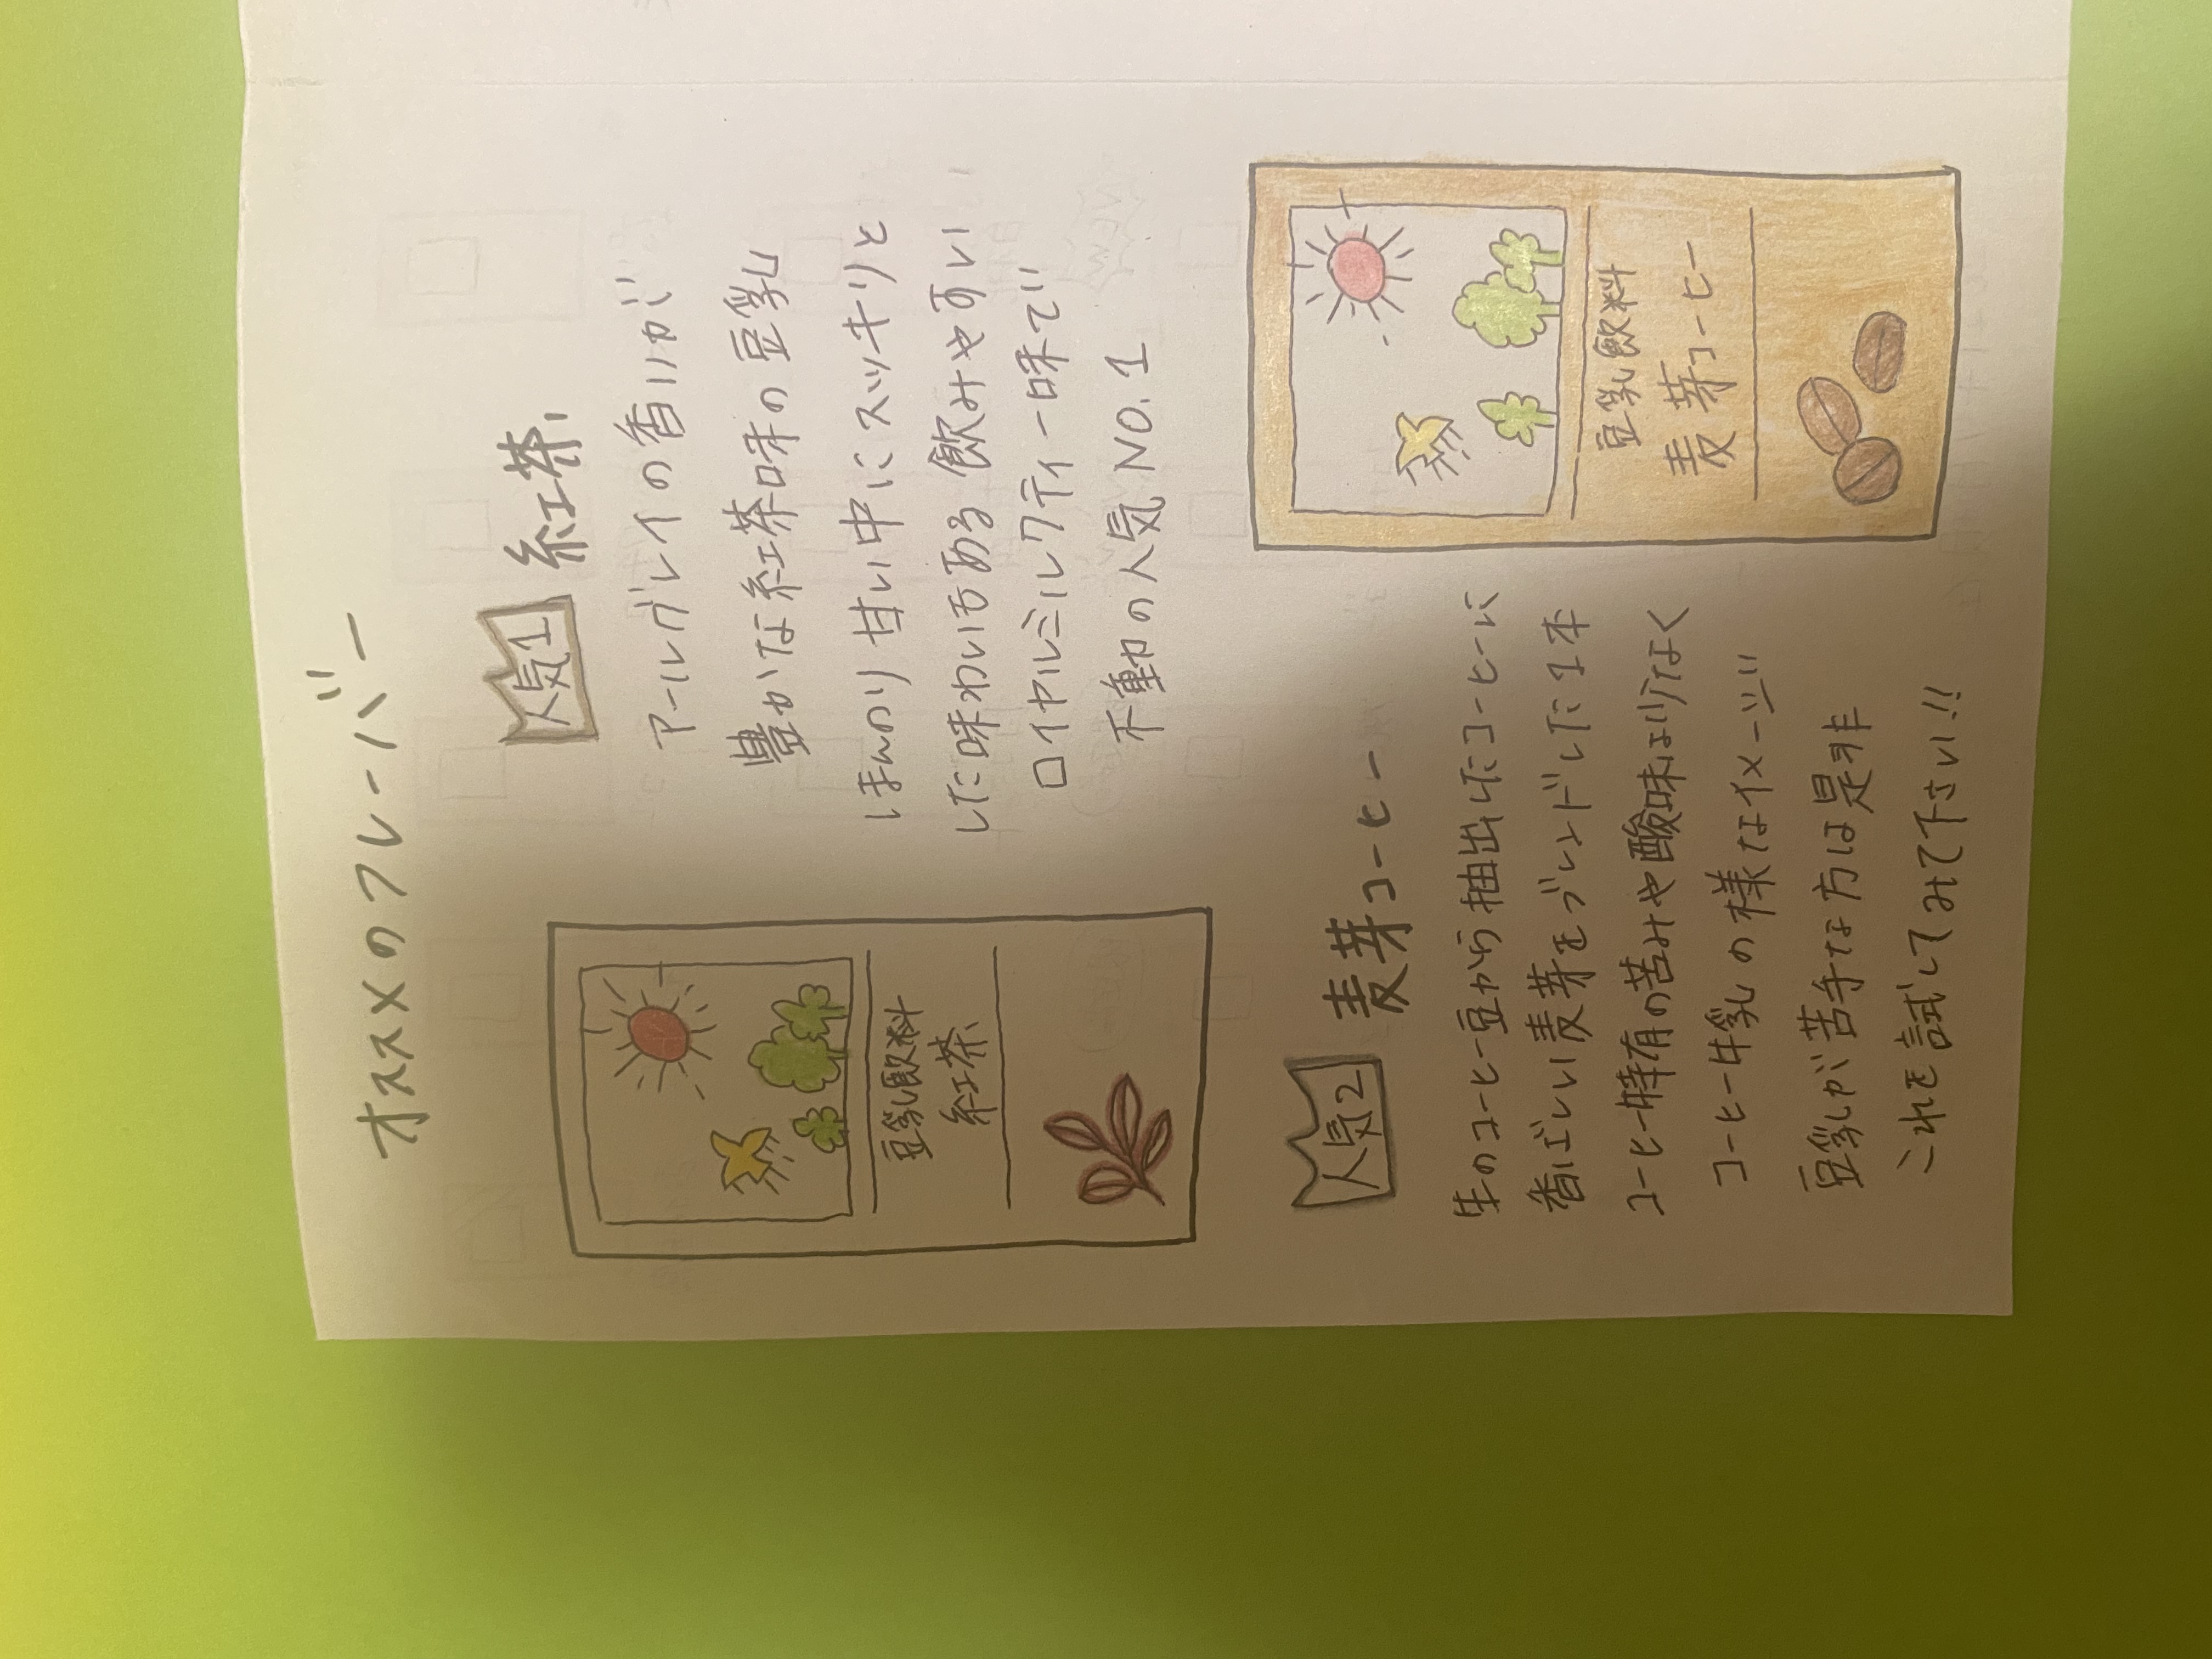 オススメのフレーバー
人気1 紅茶
アールグレイの香りが
豊かな紅茶味の豆乳
ほんのり甘い中にスッキリと
した味わいもある飲みやすい
ロイヤルミルクティー味で
不動の人気NO.1
豆乳飲料
紅茶
人気2 麦芽コーヒー
生のコーヒー豆から抽出したコーヒーに
香ばしい麦芽をブレンドした1本
コーヒー特有の苦みや酸味は少なく
コーヒー牛乳の様なイメージ
豆乳が苦手な方は是非
これを試してみて下さい!!
豆乳飲料
麦芽コーヒー